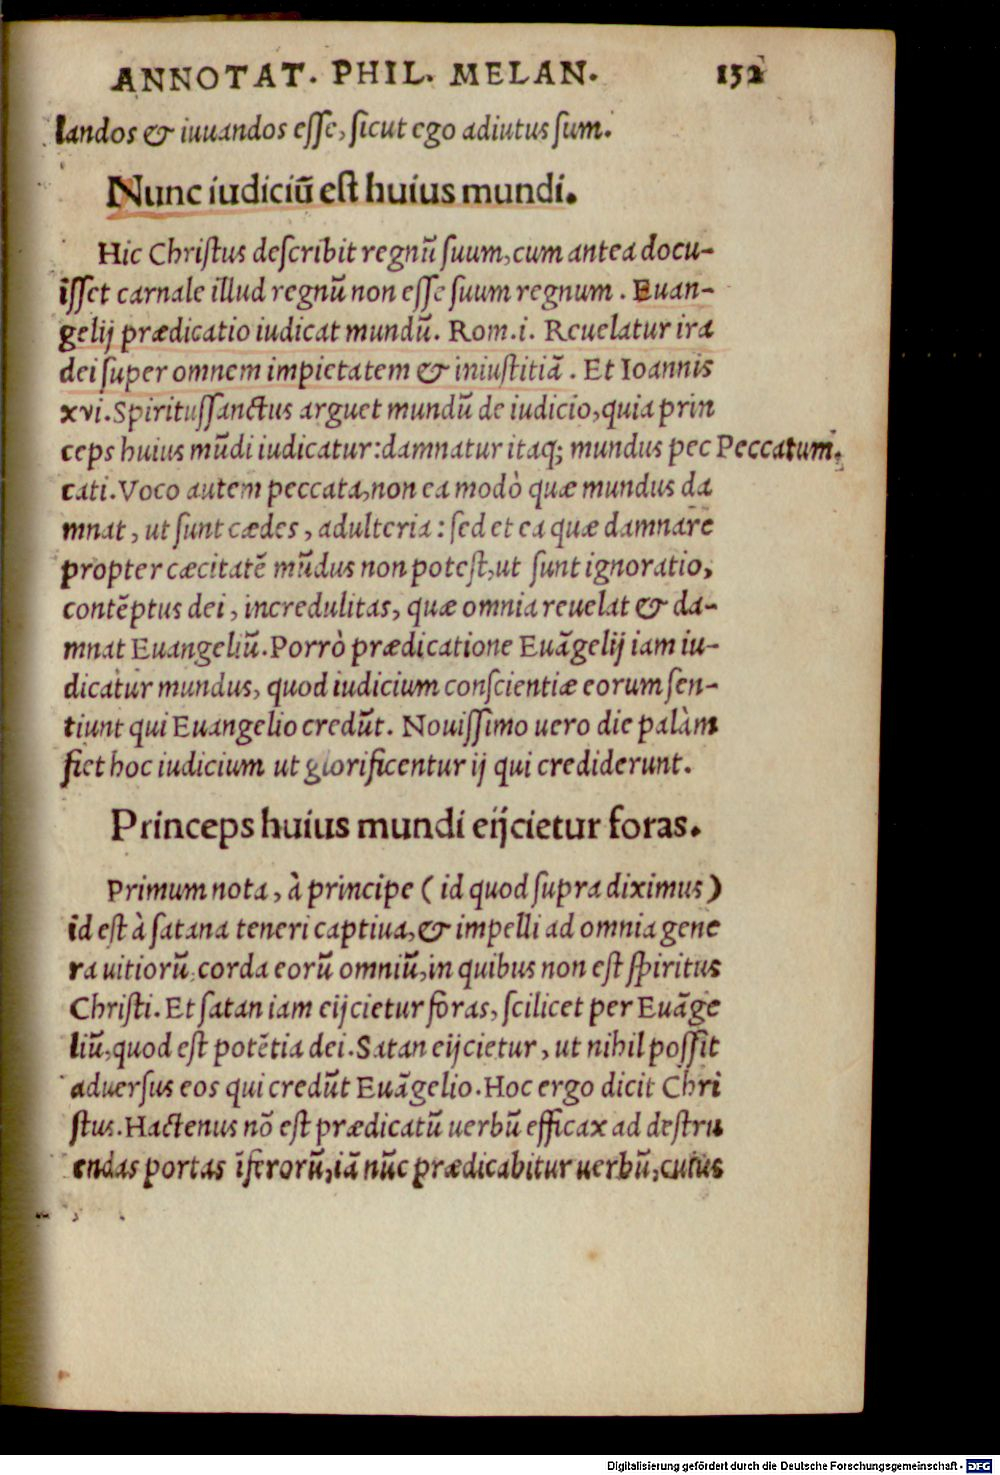 ANNOTAT. PHIL. MELAN. 152
landos & iuuandos esse, sicut ego adiutus sum.
Nunc iudiciū est huius mundi.
Hic Christus describit regnū suum, cum antea docu-
isset carnale illud regnū non esse suum regnum. Euan-
gelij prædicatio iudicat mundū. Rom. i. Reuelatur ira
dei super omnem impietatem & iniustitiā. Et Ioannis
xvi. Spiritussanctus arguet mundū de iudicio, quia prin
ceps huius mūdi iudicatur: damnatur itaq; mundus pec Peccatum.
cati. Voco autem peccata, non ea modò quæ mundus da
mnat, ut sunt cædes, adulteria: sed et ea quæ damnare
propter cæcitatē mūdus non potest, ut sunt ignoratio,
contēptus dei, incredulitas, quæ omnia reuelat & da-
mnat Euangeliū. Porrò prædicatione Euāgelij iam iu-
dicatur mundus, quod iudicium conscientiæ eorum sen-
tiunt qui Euangelio credūt. Nouissimo uero die palàm
fiet hoc iudicium ut glorificentur ij qui crediderunt.
Princeps huius mundi eijcietur foras.
Primum nota, à principe (id quod supra diximus)
id est à satana teneri captiua, & impelli ad omnia gene
ra uitiorū corda eorū omniū, in quibus non est spiritus
Christi. Et satan iam eijcietur foras, scilicet per Euāge
liū, quod est potētia dei. Satan eijcietur, ut nihil possit
aduersus eos qui credūt Euāgelio. Hoc ergo dicit Chri
stus. Hactenus nō est prædicatū uerbū efficax ad destru
endas portas īferorū, iā nūc prædicabitur uerbū, cuius
Digitalisierung gefördert durch die Deutsche Forschungsgemeinschaft - DFG